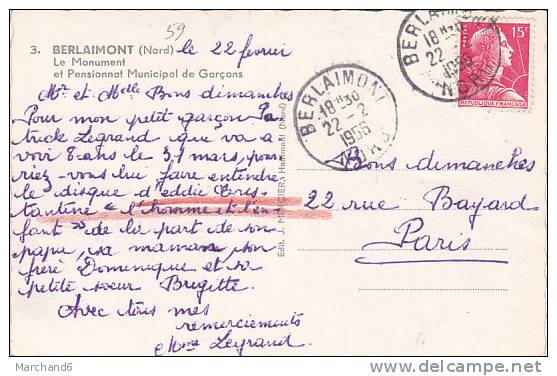 59
3. BERLAIMONT (Nord)
Le Monument
et Pensionnat Municipal de Garçons
le 22 fevrier
Mr et Melle Bons dimanches
Pour mon petit garçon Pa
trick Legrand que va a
voir 8 ans le 31 mars, pour
riez-vous lui faire entendre
le disque d'eddie Cons
tantine "l'homme et l'en
fant" de la part de son
papa, sa maman, son
frère Dominique et sa
petite soeur Brigitte.
Avec tous mes
remerciements
Mme Legrand.
Edit. J. Hautmont (Nord)
BERLAIMONT
18H30
22-2
1956
NORD
BERLAIMONT
18H30
22
1956
NORD
POSTES
15F
REPUBLIQUE FRANÇAISE
Bons dimanches
22 rue Bayard
Paris
Marchand6
www.delcampe.net